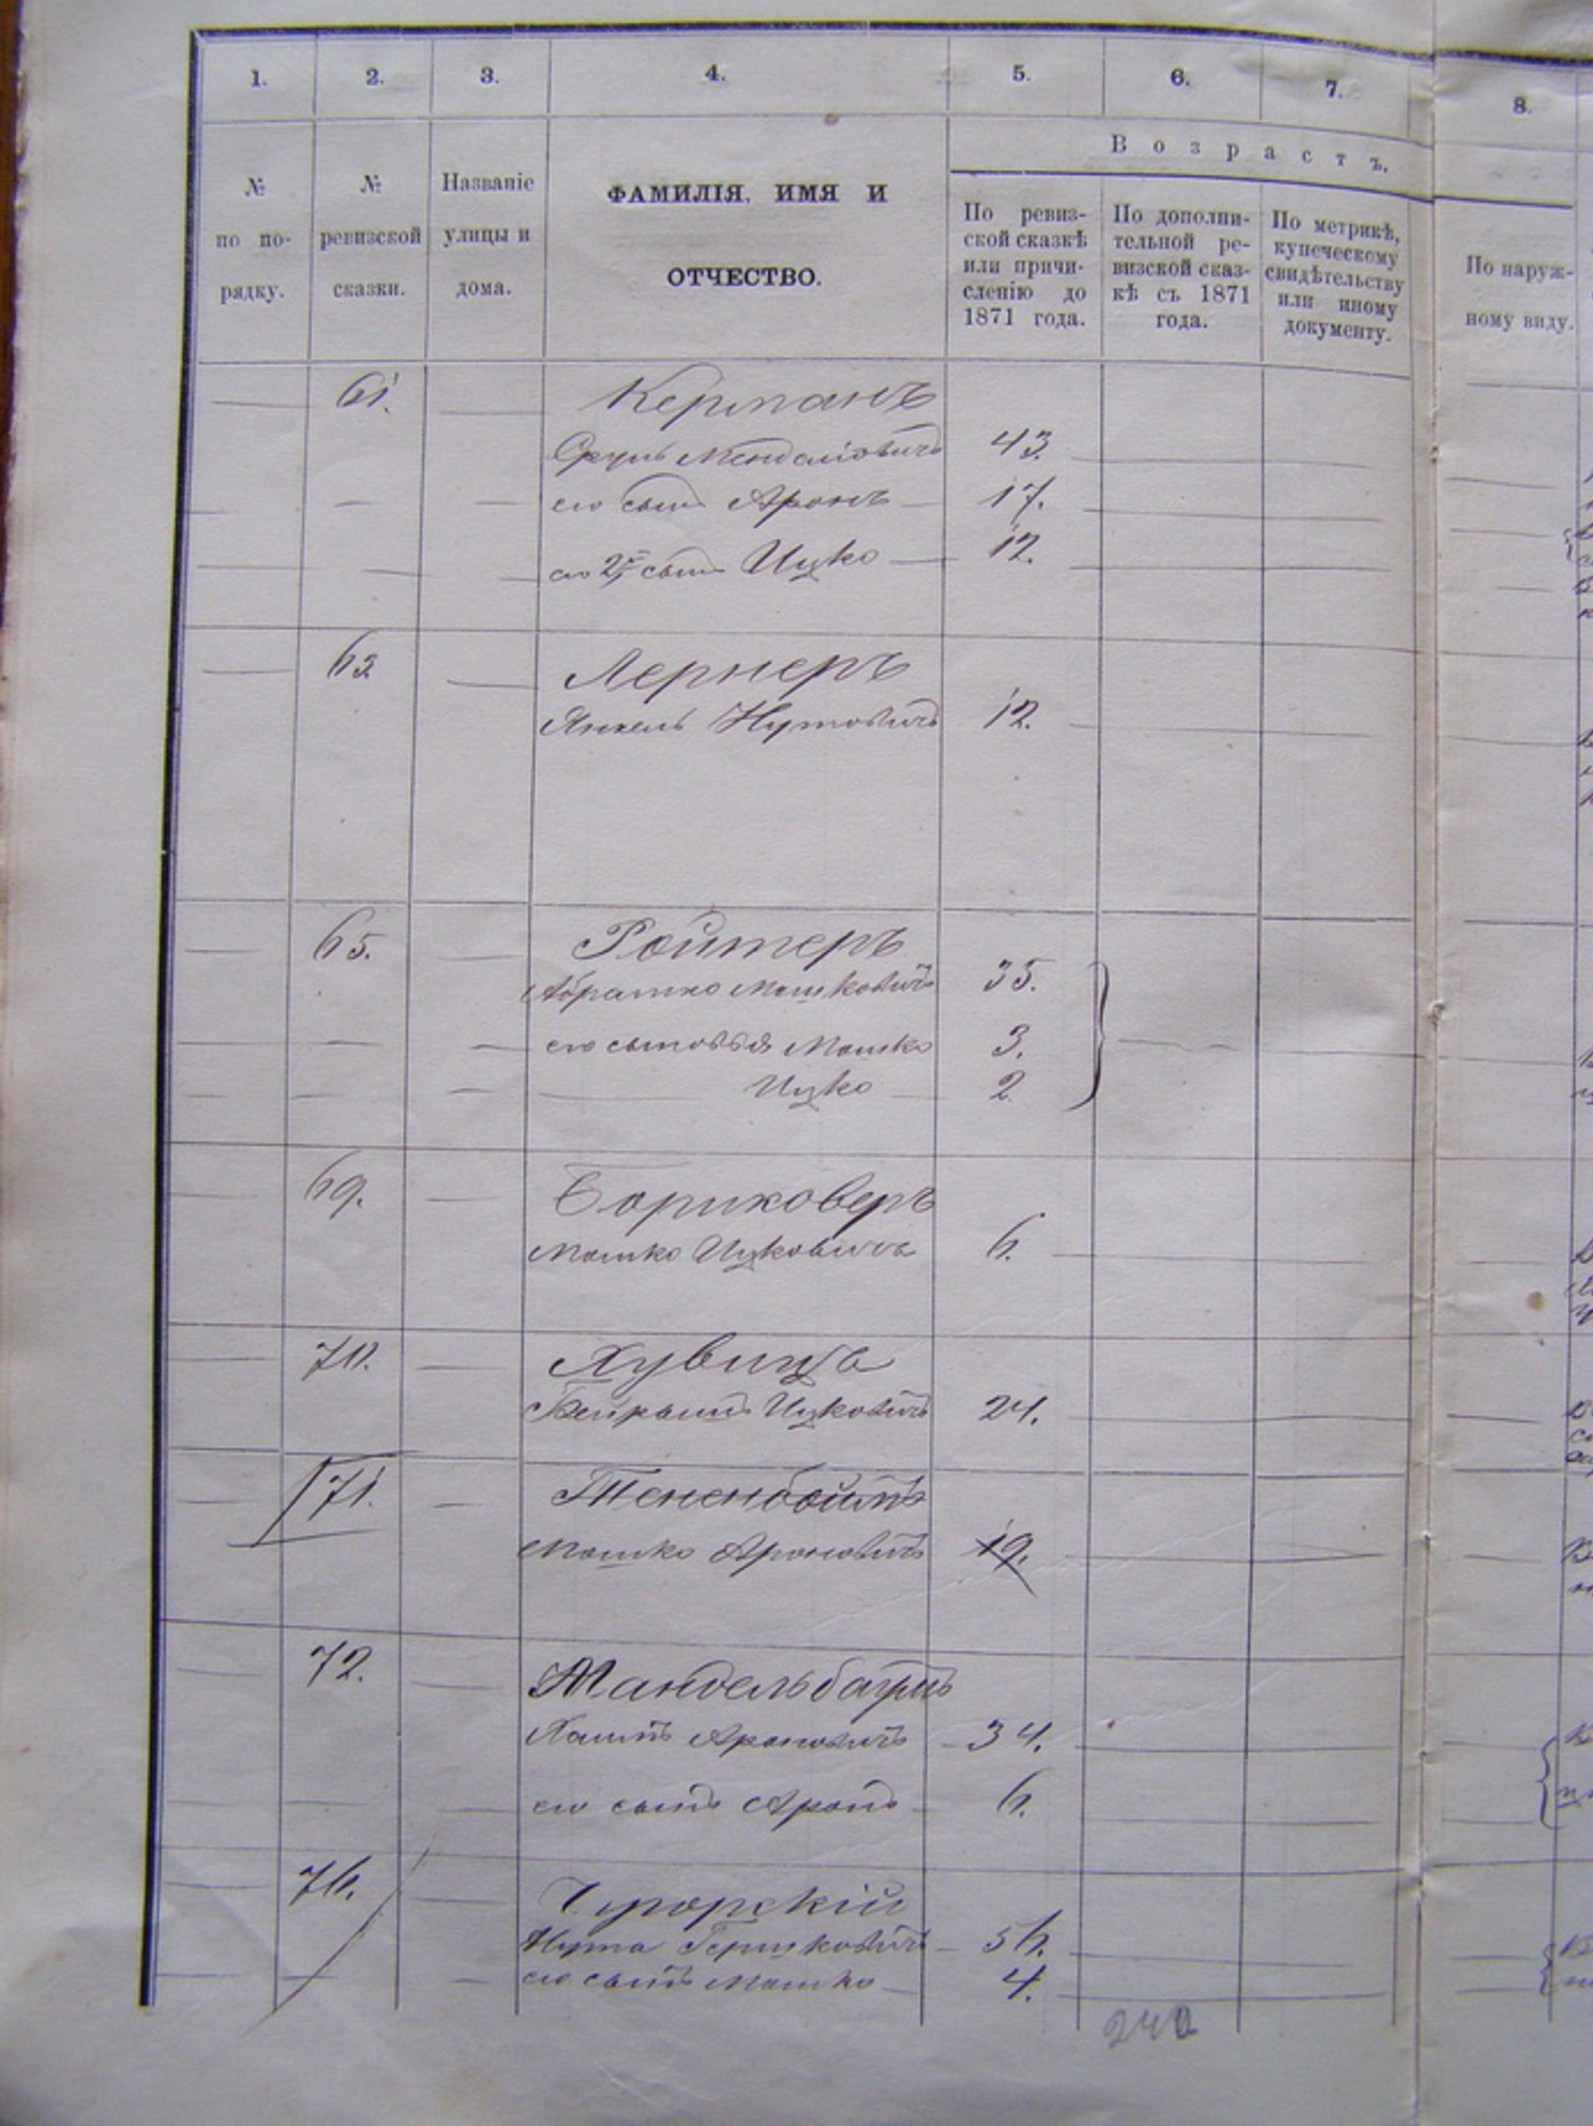 1. 2. 3. 4. 5. 6. 7. 8.
Возрастъ.
№ по по-рядку.
№ ревизской сказки.
Названіе улицы и дома.
ФАМИЛІЯ, ИМЯ И
ОТЧЕСТВО.
По ревиз-
ской сказкѣ
или причи-
сленію до
1871 года.
По дополни-
тельной ре-
визской сказ-
кѣ съ 1871
года.
По метрикѣ,
купеческому
свидѣтельству
или иному
документу.
По наруж-
ному виду.
61. Керманъ
Сруль Мендліовичъ 43.
его сынъ Аронъ 17.
его 2й сынъ Ицко 12.
62 Лернеръ
Янкель Нутовичъ 12.
65. Ройтеръ
Абрамко Мошковичъ 35.
его сыновья Мошко 3.
Ицко 2
69. Бориковеръ
Мошко Ицковичъ 6.
70. Хувицъ
Ицковичъ 24.
71. Тененбоймъ
Мошко Ароновичъ 19.
72. Мандельбаумъ
Хаимъ Ароновичъ 34.
его сынъ Аронъ 6.
76.
Нута Гершковичъ 56.
его сынъ Мошко 4.
240